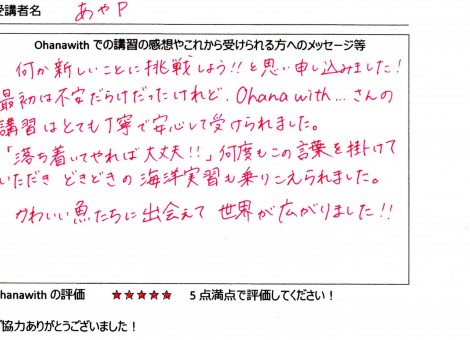 受講者名 あやP
Ohanawith での講習の感想やこれから受けられる方へのメッセージ等
何か新しいことに挑戦しよう!! と思い申し込みました!
最初は不安だらけだったけれど、Ohana with... さんの
講習はとても丁寧で安心して受けられました。
「落ち着いてやれば大丈夫!!」何度もこの言葉を掛けて
いただき どきどきの 海洋実習も乗りこえられました。
かわいい魚たちに出会えて 世界が広がりました!!
hanawith の評価 ★★★★★ 5 点満点で評価してください!
ご協力ありがとうございました!